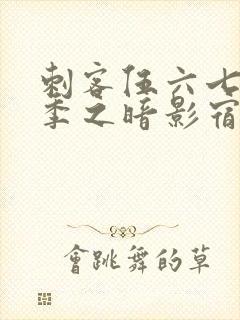 刺客伍六七
季之暗影宿
會跳舞的草